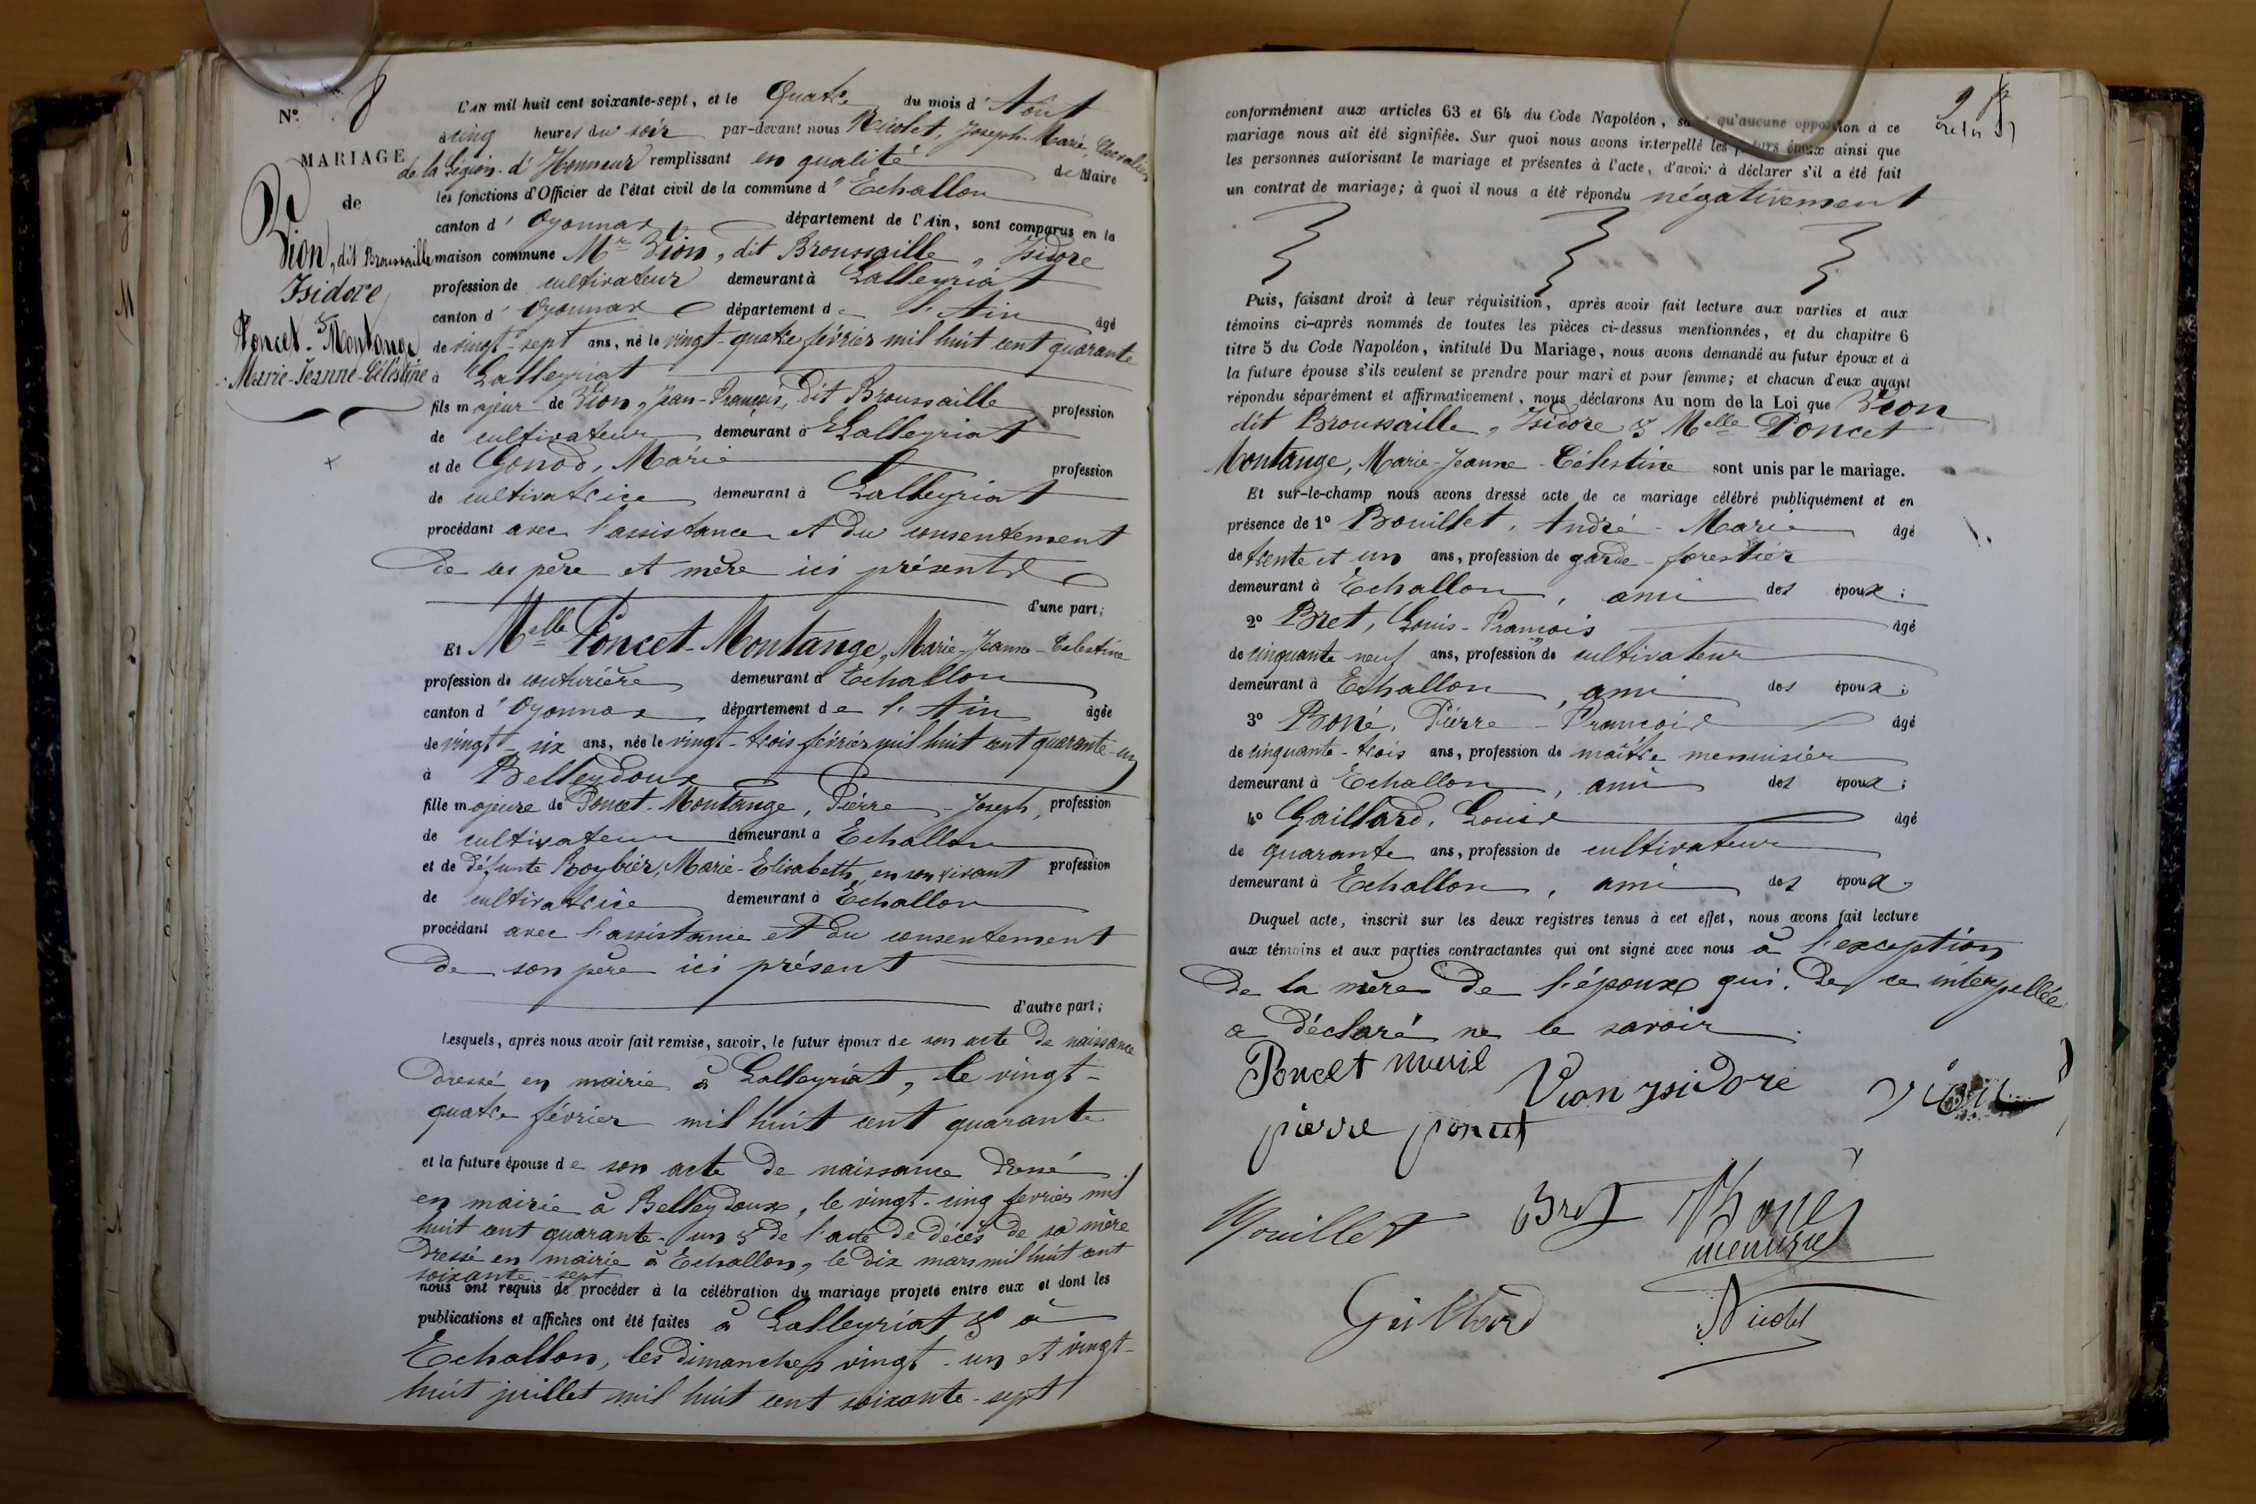 N° 8
MARIAGE
de
Vion, dit Broussaille
Isidore
&
Poncet-Montange
Marie-Jeanne-Célestine
L'AN mil huit cent soixante-sept, et le Quatre du mois d'Août
à cinq heures du soir par-devant nous Nicolet, Joseph-Marie, Chevalier
de la Légion d'Honneur remplissant en qualité de Maire
les fonctions d'Officier de l'état civil de la commune d'Echallon
canton d'Oyonnax département de l'Ain, sont comparus en la
maison commune Mr Vion, dit Broussaille, Isidore
profession de cultivateur demeurant à Lalleyriat
canton d'Oyonnax département de l'Ain âgé
de vingt-sept ans, né le vingt-quatre février mil huit cent quarante
à Lalleyriat
fils majeur de Vion, Jean-François, dit Broussaille profession
de cultivateur demeurant à Lalleyriat
et de Gonod, Marie profession
de cultivatrice demeurant à Lalleyriat
procédant avec l'assistance et du consentement
de ses père et mère ici présents
d'une part;
Et Melle Poncet-Montange, Marie-Jeanne-Célestine
profession de couturière demeurant à Echallon
canton d'Oyonnax département de l'Ain âgée
de vingt-six ans, née le vingt-trois février mil huit cent quarante-un
à Belleydoux
fille majeure de Poncet-Montange, Pierre-Joseph, profession
de cultivateur demeurant à Echallon
et de défunte Roybier, Marie-Elisabeth, en son vivant profession
de cultivatrice demeurant à Echallon
procédant avec l'assistance et du consentement
de son père ici présent
d'autre part;
Lesquels, après nous avoir fait remise, savoir, le futur époux de son acte de naissance
dressé en mairie à Lalleyriat, le vingt-
quatre février mil huit cent quarante
et la future épouse de son acte de naissance dressé
en mairie à Belleydoux, le vingt-cinq février mil
huit cent quarante-un & de l'acte de décès de sa mère
dressé en mairie à Echallon, le dix mars mil huit cent
soixante-sept
nous ont requis de procéder à la célébration du mariage projeté entre eux et dont les
publications et affiches ont été faites à Lalleyriat & à
Echallon, les dimanches vingt-un et vingt-
huit juillet mil huit cent soixante-sept
conformément aux articles 63 et 64 du Code Napoléon, sans qu'aucune opposition à ce
mariage nous ait été signifiée. Sur quoi nous avons interpellé les futurs époux ainsi que
les personnes autorisant le mariage et présentes à l'acte, d'avoir à déclarer s'il a été fait
un contrat de mariage; à quoi il nous a été répondu négativement
Puis, faisant droit à leur réquisition, après avoir fait lecture aux parties et aux
témoins ci-après nommés de toutes les pièces ci-dessus mentionnées, et du chapitre 6
titre 5 du Code Napoléon, intitulé Du Mariage, nous avons demandé au futur époux et à
la future épouse s'ils veulent se prendre pour mari et pour femme; et chacun d'eux ayant
répondu séparément et affirmativement, nous déclarons Au nom de la Loi que Vion
dit Broussaille, Isidore & Melle Poncet
Montange, Marie-Jeanne-Célestine sont unis par le mariage.
Et sur-le-champ nous avons dressé acte de ce mariage célébré publiquement et en
présence de 1° Bouillet, André-Marie âgé
de trente et un ans, profession de garde-forestier
demeurant à Echallon, ami des époux;
2° Bret, Louis-François âgé
de cinquante neuf ans, profession de cultivateur
demeurant à Echallon, ami des époux;
3° Boné, Pierre-François âgé
de cinquante-trois ans, profession de maître menuisier
demeurant à Echallon, ami des époux;
4° Gaillard, Louis âgé
de quarante ans, profession de cultivateur
demeurant à Echallon, ami des époux.
Duquel acte, inscrit sur les deux registres tenus à cet effet, nous avons fait lecture
aux témoins et aux parties contractantes qui ont signé avec nous à l'exception
de la mère de l'époux qui, de ce interpellée
a déclaré ne le savoir.
Poncet
Vion ysidore
pierre poncet
Bouillet
Bret
Boné
menuisier
Gaillard
Nicolet